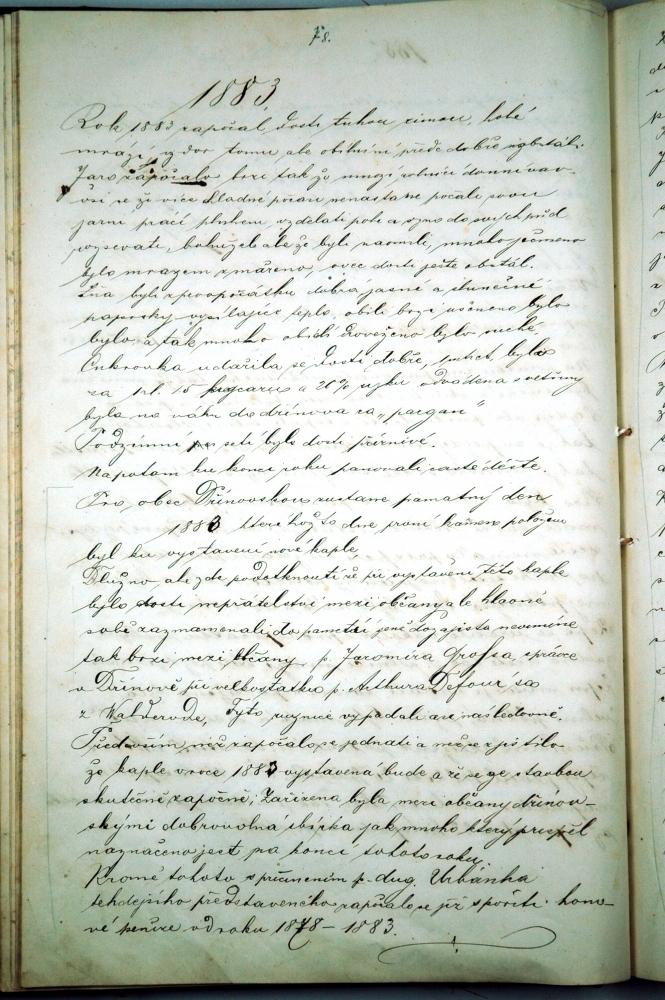 78.
1883
Rok 1883 započal dosti tuhou zimou, holé
mrázy, vzdor tomu ale obilní přede dobře
Jaro započalo brzo tak že mnozí rolníci
že více žádné počasí nenastane počali svou
jarní práci pluhem vzdělati pole a do svých půd
vysévati, bohužel ale že byli mnoho ječmeno
bylo mrazem zmařeno, ovec dosti ještě obstál.
žňa byli zprvopočátku dobrá jasné a slunečné
paprsky teplo, obilí brzo bylo
bylo a tak mnoho obilí dovezeno bylo suché.
Cukrovka udařila se dosti dobře, byla
za 15 a 20% odváděna
byla na váhu do Dřínova za „pargan"
Podzimní setí bylo dosti příznivé.
Napotom ku konci roku panovali časté déště.
Pro obec Dřínovskou zustane pamatný den
1883 kteréhož to dne první kámen položen
byl ku vystavení nové kaple,
Služno ale zde podotknouti že při vystavení této kaple
bylo dosti nepřátelství mezi občany ale hlavně
sobě zaznamenali do paměti jenž dozajista nevymine
tak brzo mezi občany p. Jaromíra Grossa, správce
v Dřínově při velkostatku p. Arthura Defour'sa
z Walderode, Tyto ruznice vypadali asi následovně.
Především než započalo se jednati a než se zjistilo
že kaple v roce 1883 vystavená bude a že se ze stavbou
skutečně započne; Zařízena byla mezi občany dřínov-
skými dobrovolná sbírka jak mnoho který přispěl
naznačeno jest na konci tohoto roku.
Kromě tohoto s přičiněním p. Aug. Urbánka
tehdejšího představeného započalo se již spořiti hono-
vé peníze od roku 1878 – 1883.